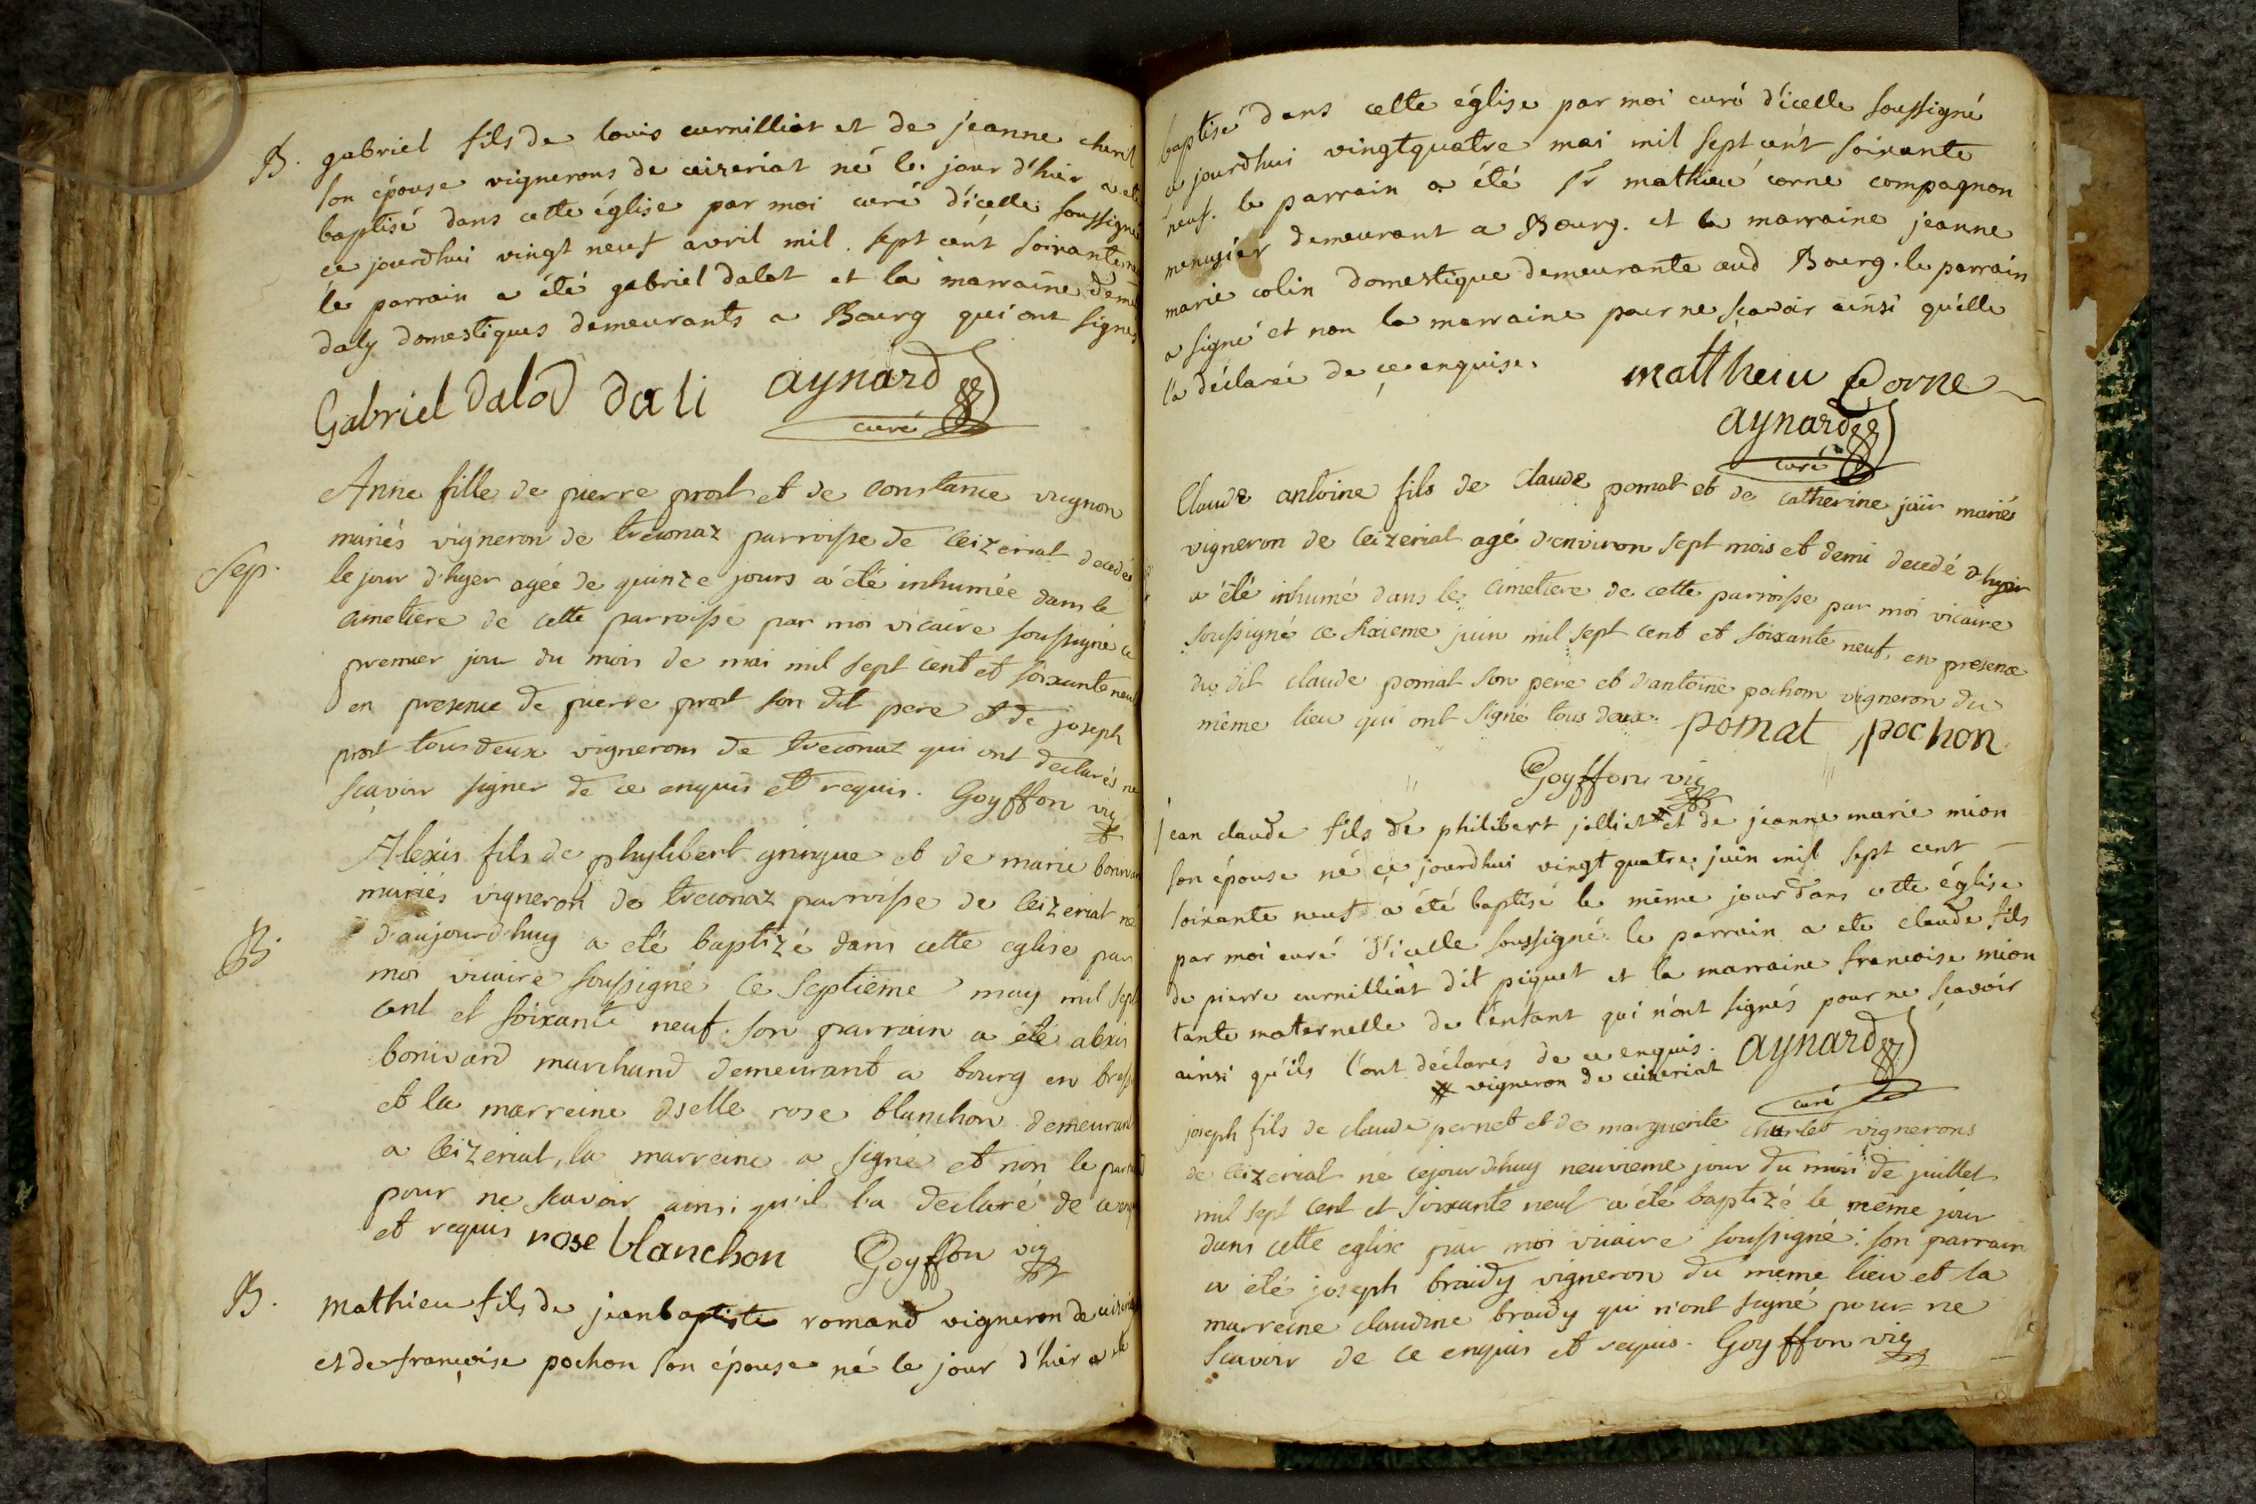 B. gabriel fils de louis curnilliat et de jeanne
son épouse vignerons de ceizeriat né le jour d'hier a été
baptisé dans cette église par moi curé d'icelle soussigné
ce jourdhui vingt neuf avril mil sept cent soixante
le parrain a été gabriel dalat et la marraine
daly domestiques demeurants a Bourg qui ont signés
Gabriel dalod dali aynard
curé
Anne fille de pierre prost et de constance vugnon
mariés vigneron de treconaz parroisse de Ceizeriat decedée
Sep. le jour d'hyer agée de quinze jours a été inhumée dans le
cimetiere de cette parroisse par moi vicaire soussigné ce
premier jour du mois de mai mil sept cent et soixante neuf
en presence de pierre prost son dit pere et de joseph
prost tous deux vignerons de treconaz qui ont declarés ne
scavoir signer de ce enquis et requis. Goyffon vic
Alexis fils de phylibert gringue et de marie
mariés vigneron de treconaz parroisse de Ceizeriat né
B. d'aujourd'huy a eté baptizé dans cette eglise par
moi vicaire soussigné ce septieme may mil sept
cent et soixante neuf. son parrain a été alexis
bonivard marchand demeurant a bourg en
et la marreine dselle rose blanchon demeurant
a Ceizeriat, la marreine a signé et non le
pour ne scavoir ainsi qu'il l'a declaré de ce
et requis rose blanchon Goyffon vic
B. mathieu fils de jean baptiste romand vigneron de
et de françoise pochon son épouse né le jour d'hier a été
baptisé dans cette église par moi curé d'icelle soussigné
a jourdhui vingtquatre mai mil sept cent soixante
neuf. le parrain a été sr mathieu corne compagnon
menusier demeurant a Bourg. et la marraine jeanne
marie colin domestique demeurante aud Bourg. le parrain
a signé et non la marraine pour ne scavoir ainsi qu'elle
l'a déclaré de ce enquise. matthieu Corne
aynard
curé
Claude antoine fils de Claude pomat et de catherine jair mariés
vigneron de Ceizeriat agé d'environ sept mois et demi decedé d'hyer
a été inhumé dans le cimetiere de cette parroisse par moi vicaire
soussigné ce sixieme juin mil sept cent et soixante neuf. en presence
du dit claude pomat son pere et d'antoine pochon vigneron du
même lieu qui ont signé tous deux. pomat pochon
Goyffon vic
jean claude fils de philibert jolliet # et de jeanne marie mion
son épouse né ce jourdhui vingt quatre juin mil sept cent
soixante neuf a été baptisé le même jour dans cette église
par moi curé d'icelle soussigné. le parrain a ete claude fils
de pierre curnilliat dit piquet et la marraine francoise mion
tante maternelle de l'enfant qui n'ont signés pour ne scavoir
ainsi qu'ils l'ont déclarés de ce enquis. aynard
# vigneron de ceizeriat curé
joseph fils de claude pernet et de marguerite charlet vignerons
de Ceizeriat né cejourdhuy neuvieme jour du mois de juillet
mil sept cent et soixante neuf a été baptizé le même jour
dans cette eglise par moi vicaire soussigné. son parrain
a été joseph braidy vigneron du meme lieu et la
marreine claudine braidy qui n'ont signé pour ne
scavoir de ce enquis et requis. Goyffon vic